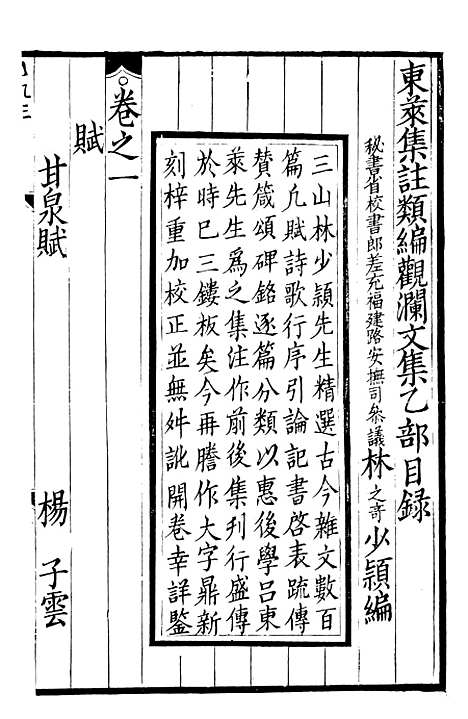 東萊集註類編觀瀾文集乙部目録
秘書省校書郎差充福建路安撫司叅議林之奇少穎編
三山林少穎先生精選古今雜文數百
篇凢賦詩歌行序引論記書啓表疏傳
賛箴頌碑銘逐篇分類以惠後學吕東
萊先生爲之集注作前後集刊行盛傳
於時已三鏤板矣今再謄作大字鼎新
刻梓重加校正並無舛訛開卷幸詳鑒
卷之一
賦
甘泉賦 楊子雲